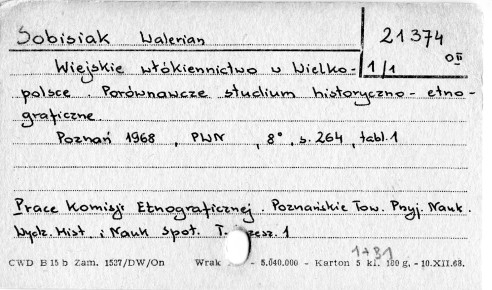 Sobisiak Walerian
21374
OE
Wiejskie włókiennictwo w Wielko-
1/1
polsce. Porównawcze studium historyczno-etno-
graficzne.
Poznań 1968, PWN, 8°, s. 264, tabl. 1
Prace Komisji Etnograficznej. Poznańskie Tow. Przyj. Nauk.
Wydz. Hist. i Nauk Społ. T. zesz. 1
1+31
CWD B 15 b Zam. 1527/DW/On Wrak - 5.040.000 - Karton 5 kl. g, -10.XII.63.